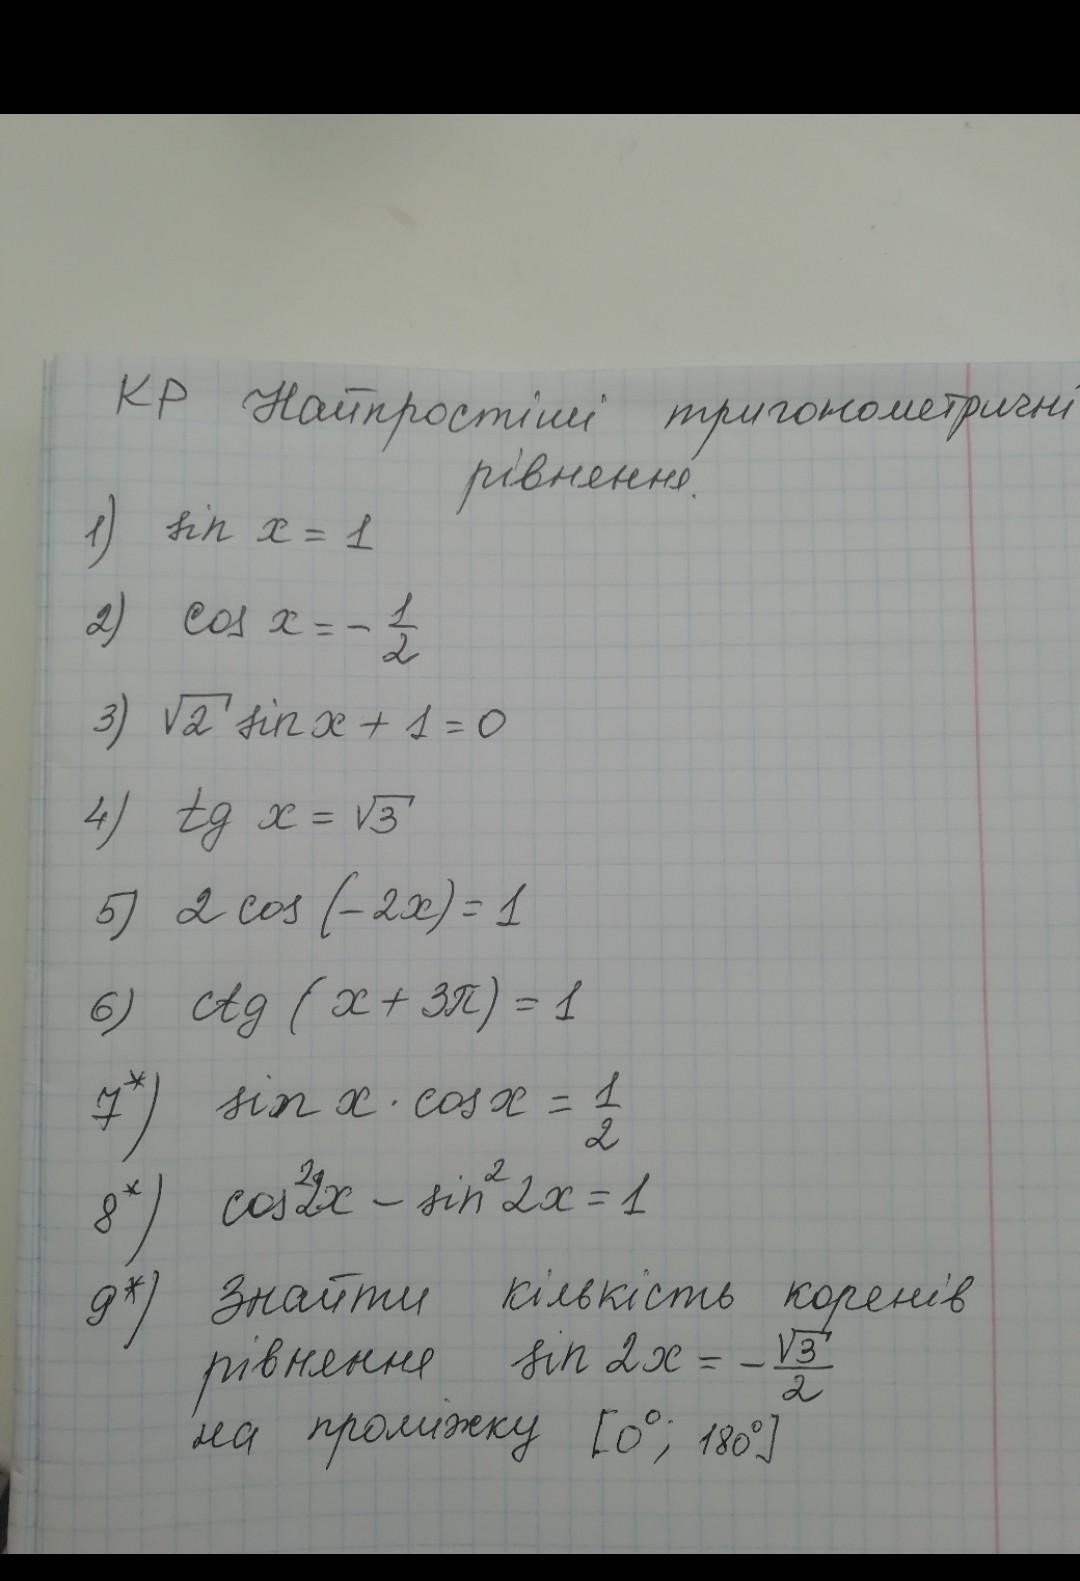 КР Найпростіші тригонометричні
рівняння.
1) sin x = 1
2) cos x = - 1/2
3) √2 sin x + 1 = 0
4) tg x = √3
5) 2 cos (-2x) = 1
6) ctg (x + 3π) = 1
7*) sin x · cos x = 1/2
8*) cos²2x - sin²2x = 1
9*) Знайти кількість коренів
рівняння sin 2x = - √3/2
на проміжку [0°; 180°]